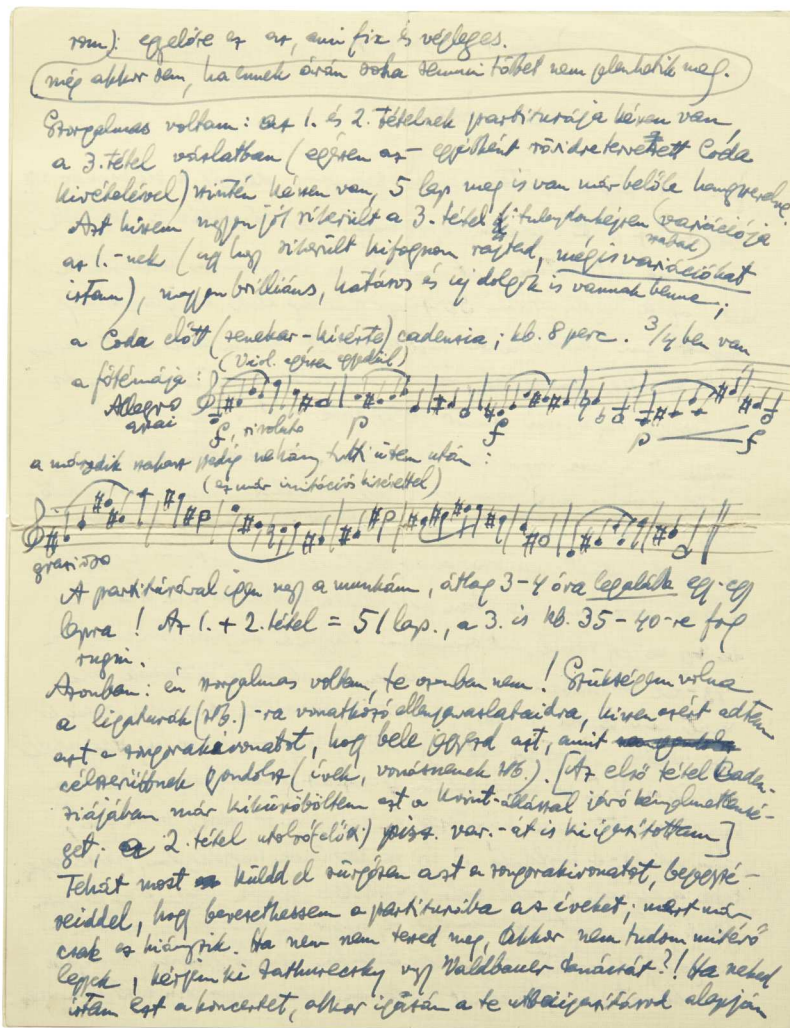 rom): egyelőre ez az, ami fix és végleges.
(még akkor sem, ha ennek árán soha semmi többet nem jelenhetik meg.
Szorgalmas voltam: az 1. és 2. tételnek partiturája készen van,
a 3. tétel vázlatban (egészen az – egyébként rövidre tervezett Coda
kivételével) szintén készen van, 5 lap meg is van már belőle hangszerelve.
Azt hiszem nagyon jól sikerült a 3. tétel, tulajdonképpen (szabad) variációja
az 1.-nek (úgy hogy sikerült kifognom rajtad, mégis variációkat
írtam), nagyon brilliáns, hatásos és új dolgok is vannak benne;
a Coda előtt (zenekar-kisérte) cadenzia; kb. 8 perc. 3/4 ben van
(Viol. egészen egyedül)
a főtémája:
Allegro
assai
f, risoluto p f p f
a második szakasz pedig néhány tutti ütem után:
(ez már imitációs kisérettel)
grazioso
A partitúrával igen nagy a munkám, átlag 3–4 óra legalább egy-egy
lapra! Az 1. + 2. tétel = 51 lap., a 3. is kb. 35–40-re fog
rugni.
Azonban: én szorgalmas voltam, te azonban nem! Szükségem volna
a ligaturák (stb.)-ra vonatkozó ellenjavaslataidra, hiszen azért adtam
azt a zongorakivonatot, hogy bele jegyezd azt, amit
célszerűbbnek gondolsz (ívek, vonásnemek stb.). [Az első tétel Caden-
ziájában már kiküszöböltem azt a kvint-állással járó kényelmetlensé-
get; a 2. tétel utolsó (előtti) pizz. var.-át is kiigazítottam]
Tehát most küldd el sürgősen azt a zongorakivonatot, bejegyzé-
seiddel, hogy bevezethessem a partituróba az íveket; mert már
csak ez hiányzik. Ha nem teszed meg, akkor nem tudom mitévő
legyek, kérjem ki Zathureczky vagy Waldbauer tanácsát?! Ha neked
írtam ezt a koncertet, akkor igazán a te útbaigazításod alapján